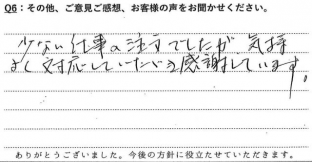 Q6：その他、ご意見ご感想、お客様の声をお聞かせください。
少ない仕事の注文でしたが、気持
よく対応していただき感謝しています。
ありがとうございました。今後の方針に役立たせていただきます。